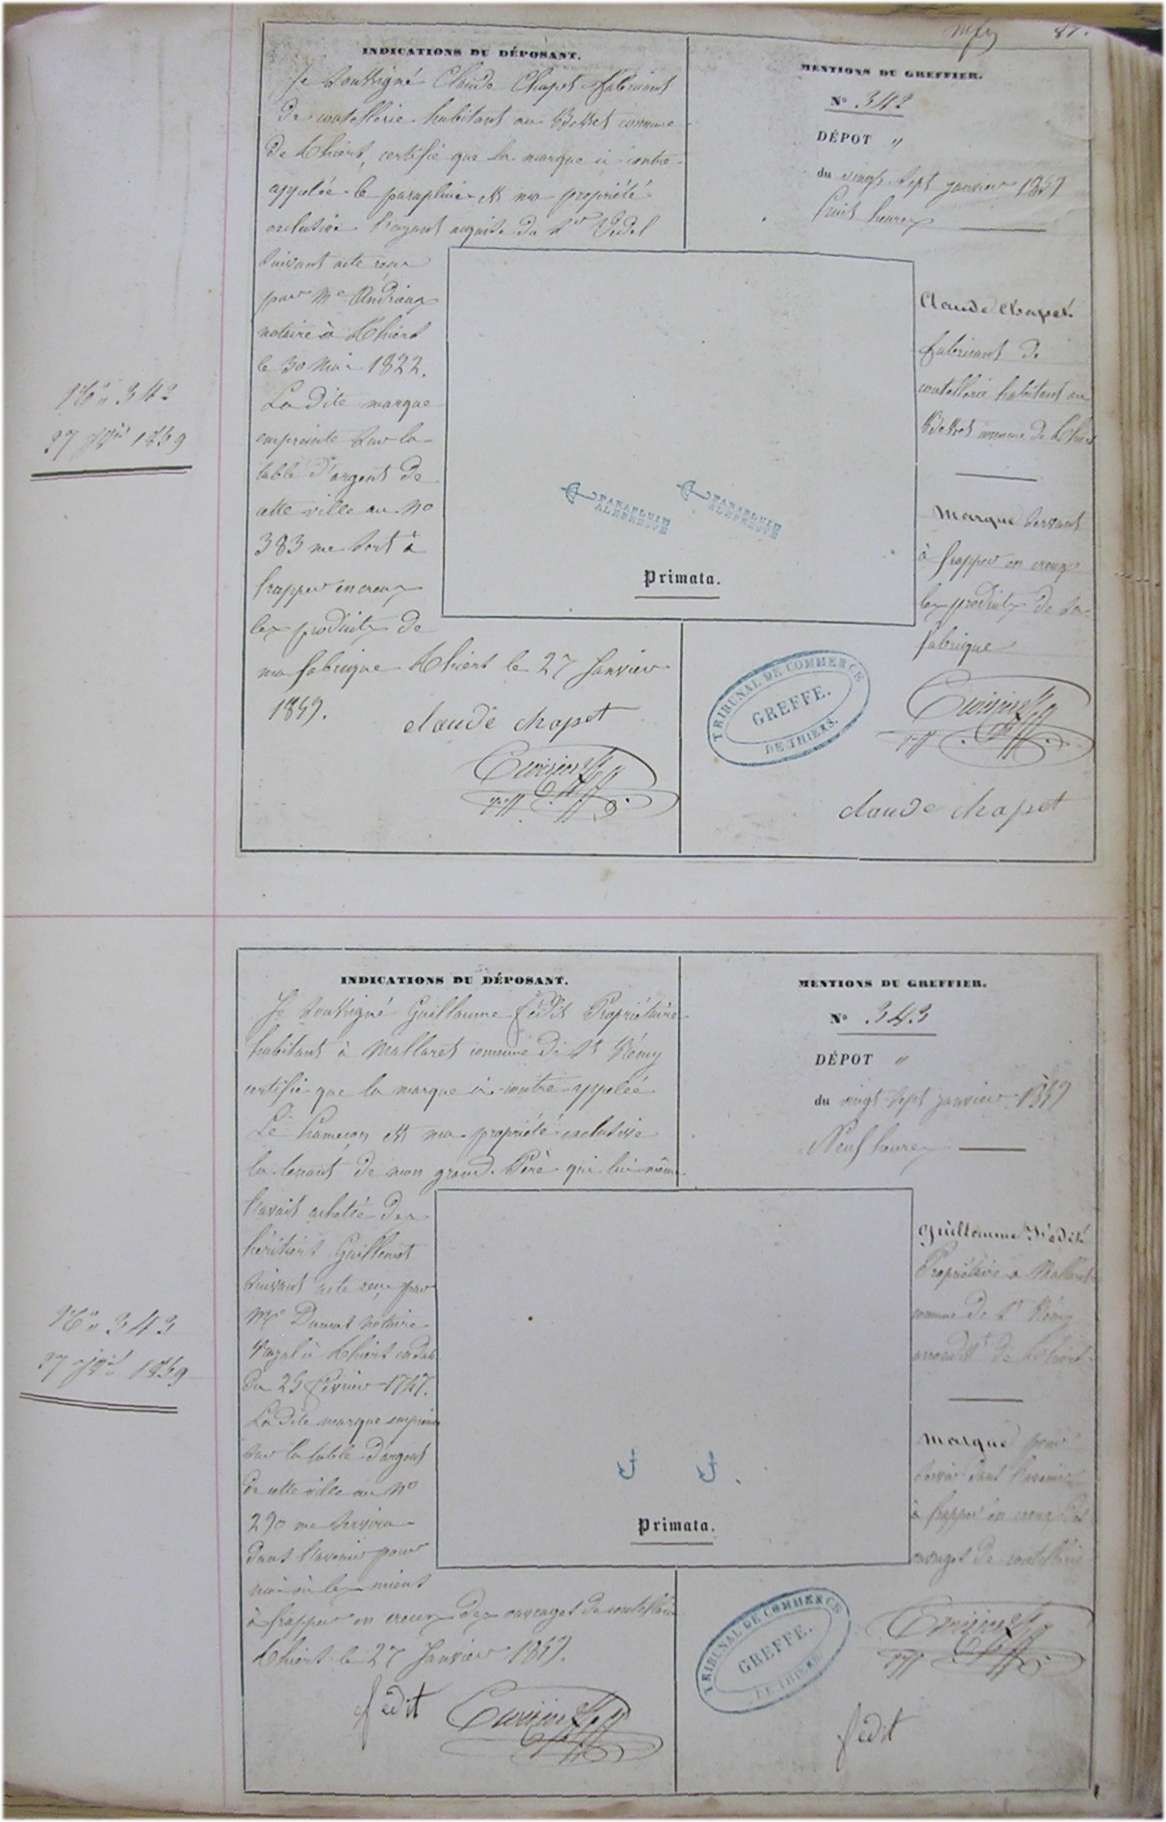 87.
INDICATIONS DU DÉPOSANT.
Je soussigné Claude Chapet fabricant
de coutellerie habitant au commune
de Thiers, certifie que la marque ci-contre
appelée le parapluie est ma propriété
exclusive l'ayant acquise du Sr Vedel
suivant acte reçu
par Me Andrieux
notaire à Thiers
le 30 Mai 1822.
La dite marque
empreinte sur la
table d'argent de
cette ville au No
383 me sert à
frapper en creux
les produits de
ma fabrique Thiers le 27 Janvier
1859.
claude chapet
MENTIONS DU GREFFIER.
No 342
DÉPOT "
du vingt sept janvier 1859
huit heures
Claude Chapet
fabricant de
coutellerie habitant au
commune de Thiers
Marque servant
à frapper en creux
les produits de sa
fabrique
claude chapet
PARAPLUIE
ALEPREUVE
PARAPLUIE
ALEPREUVE
Primata.
TRIBUNAL DE COMMERCE
GREFFE.
DE THIERS.
No 342
27 1859
INDICATIONS DU DÉPOSANT.
Je soussigné Guillaume Fédit Propriétaire
habitant à Mallaret commune de St Rémy
certifie que la marque ci-contre appelée
Le hameçon est ma propriété exclusive
la tenant de mon grand Père qui lui même
l'avait achetée des
héritiers Guillemot
suivant acte reçu par
Me notaire
Royal à Thiers en date
du 25 février 1747.
La dite marque empreinte
sur la table d'argent
de cette ville au No
290 me servira
dans l'avenir pour
moi ou les miens
à frapper en creux des ouvrages de coutellerie
Thiers le 27 Janvier 1859.
fédit
MENTIONS DU GREFFIER.
No 343
DÉPOT "
du vingt sept janvier 1859
Neuf heures
Guillaume Fédit
Propriétaire à Mallaret
commune de St Rémy
arrondt de Thiers
Marque pour
servir dans l'avenir
à frapper en creux des
ouvrages de coutellerie
fedit
Primata.
TRIBUNAL DE COMMERCE
GREFFE.
DE THIERS
No 343
27 1859